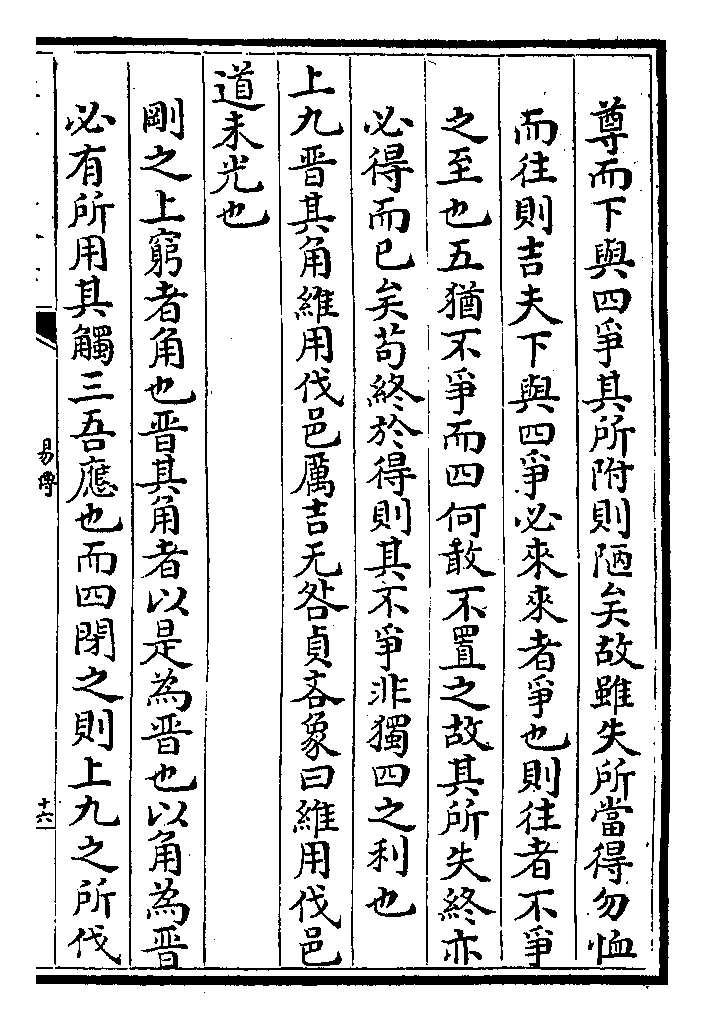 尊而下與四爭其所附則陋矣故雖失所當得勿恤
而往則吉夫下與四爭必來來者爭也則往者不爭
之至也五猶不爭而四何敢不置之故其所失終亦
必得而已矣苟終於得則其不爭非獨四之利也
上九晋其角維用伐邑厲吉无咎貞吝象曰維用伐邑
道未光也
剛之上窮者角也晋其角者以是為晋也以角為晋
必有所用其觸三吾應也而四閉之則上九之所伐
易傳
十六